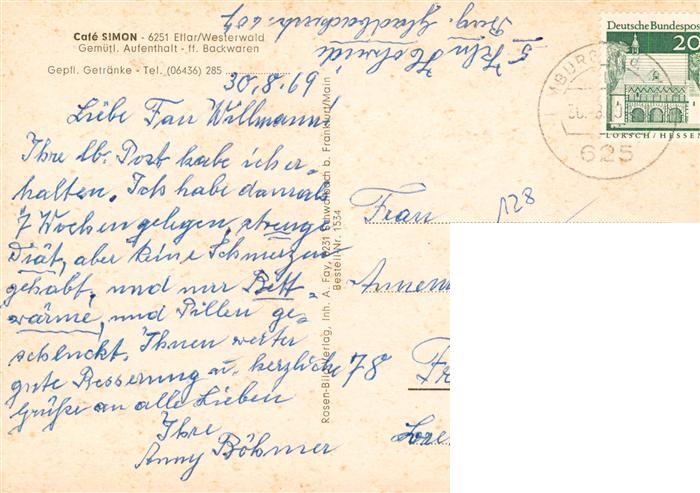 Café SIMON - 6251 Ellar/Westerwald
Gemütl. Aufenthalt - ff. Backwaren
Gepfl. Getränke - Tel. (06436) 285
30.8.69
Liebe Frau Willmann!
Ihre lb. Post habe ich er-
halten. Ich habe damals
7 Wochen gelegen, strenge
Diät, aber keine Schmerzen
gehabt, und nur Bett-
wärme, und Pillen ge-
schluckt. Ihnen weiter
gute Besserung u. herzliche
Grüße an alle Lieben
Ihre
Anny Böhmer
5 Köln
Berg. Gladbacherstr. 207
Rosen-Bild-Verlag, Inh. A. Fay, 6231 Schwalbach b. Frankfurt/Main
Bestell-Nr. 1534
Deutsche Bundespost
20
LORSCH/HESSEN
625
128
Frau
Annem
78